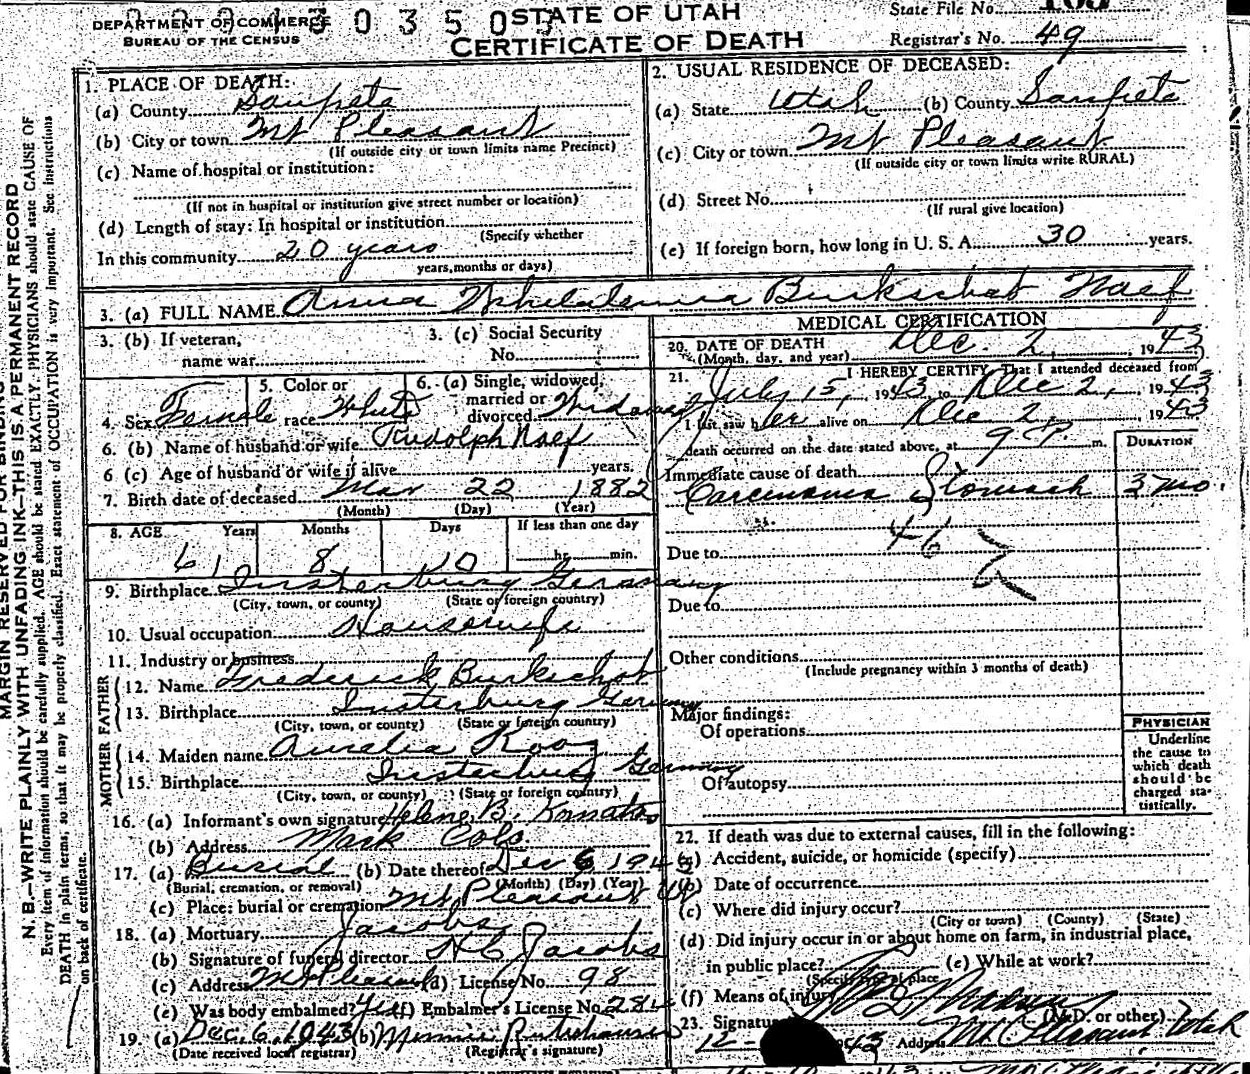 STATE OF UTAH
CERTIFICATE OF DEATH
DEPARTMENT OF COMMERCE
BUREAU OF THE CENSUS
State File No.
Registrar's No. 49
MARGIN RESERVED FOR BINDING
N. B.—WRITE PLAINLY WITH UNFADING INK—THIS IS A PERMANENT RECORD
Every item of information should be carefully supplied. AGE should be stated EXACTLY. PHYSICIANS should state CAUSE OF
DEATH in plain terms, so that it may be properly classified. Exact statement of OCCUPATION is very important. See Instructions
on back of certificate.
1. PLACE OF DEATH:
(a) County Sanpete
(b) City or town Mt Pleasant
(If outside city or town limits name Precinct)
(c) Name of hospital or institution:
(If not in hospital or institution give street number or location)
(d) Length of stay: In hospital or institution
(Specify whether
In this community 20 years
years, months or days)
2. USUAL RESIDENCE OF DECEASED:
(a) State Utah (b) County Sanpete
(c) City or town Mt Pleasant
(If outside city or town limits write RURAL)
(d) Street No.
(If rural give location)
(e) If foreign born, how long in U. S. A. 30 years.
3. (a) FULL NAME Anna Burkschat Naef
3. (b) If veteran,
name war
3. (c) Social Security
No.
4. Sex Female
5. Color or
race White
6. (a) Single, widowed,
married or
divorced Widowed
6. (b) Name of husband or wife Rudolph Naef
6 (c) Age of husband or wife if alive years.
7. Birth date of deceased Mar 22 1882
(Month) (Day) (Year)
8. AGE Years Months Days If less than one day
61 8 10 hr. min.
9. Birthplace Insterburg Germany
(City, town, or county) (State or foreign country)
10. Usual occupation Housewife
11. Industry or business
FATHER
12. Name Frederick Burkschat
13. Birthplace Insterburg Germany
(City, town, or county) (State or foreign country)
MOTHER
14. Maiden name Aurelia
15. Birthplace Insterburg Germany
(City, town, or county) (State or foreign country)
16. (a) Informant's own signature Helene B.
(b) Address
17. (a) Burial (b) Date thereof Dec 6 1943
(Burial, cremation, or removal) (Month) (Day) (Year)
(c) Place: burial or cremation Mt Pleasant Ut
18. (a) Mortuary Jacobs
(b) Signature of funeral director H C Jacobs
(c) Address Mt Pleasant (d) License No. 98
(e) Was body embalmed? (f) Embalmer's License No.
19. (a) Dec. 6, 1943 (b) Minnie
(Date received local registrar) (Registrar's signature)
MEDICAL CERTIFICATION
20. DATE OF DEATH Dec. 2, 1943
(Month, day, and year)
21. I HEREBY CERTIFY, That I attended deceased from
July 15, 1943 to Dec 2, 1943
I last saw her alive on Dec 2, 1943
death occurred on the date stated above, at 9 P. m.
DURATION
Immediate cause of death
Carcinoma Stomach 5 mo.
46
Due to
Due to
Other conditions
(Include pregnancy within 3 months of death)
Major findings:
Of operations
Of autopsy
PHYSICIAN
Underline
the cause to
which death
should be
charged sta-
tistically.
22. If death was due to external causes, fill in the following:
(a) Accident, suicide, or homicide (specify)
(b) Date of occurrence
(c) Where did injury occur?
(City or town) (County) (State)
(d) Did injury occur in or about home on farm, in industrial place,
in public place? (e) While at work?
(Specify type of place)
(f) Means of injury
23. Signature (M.D. or other)
Address Mt Pleasant, Utah